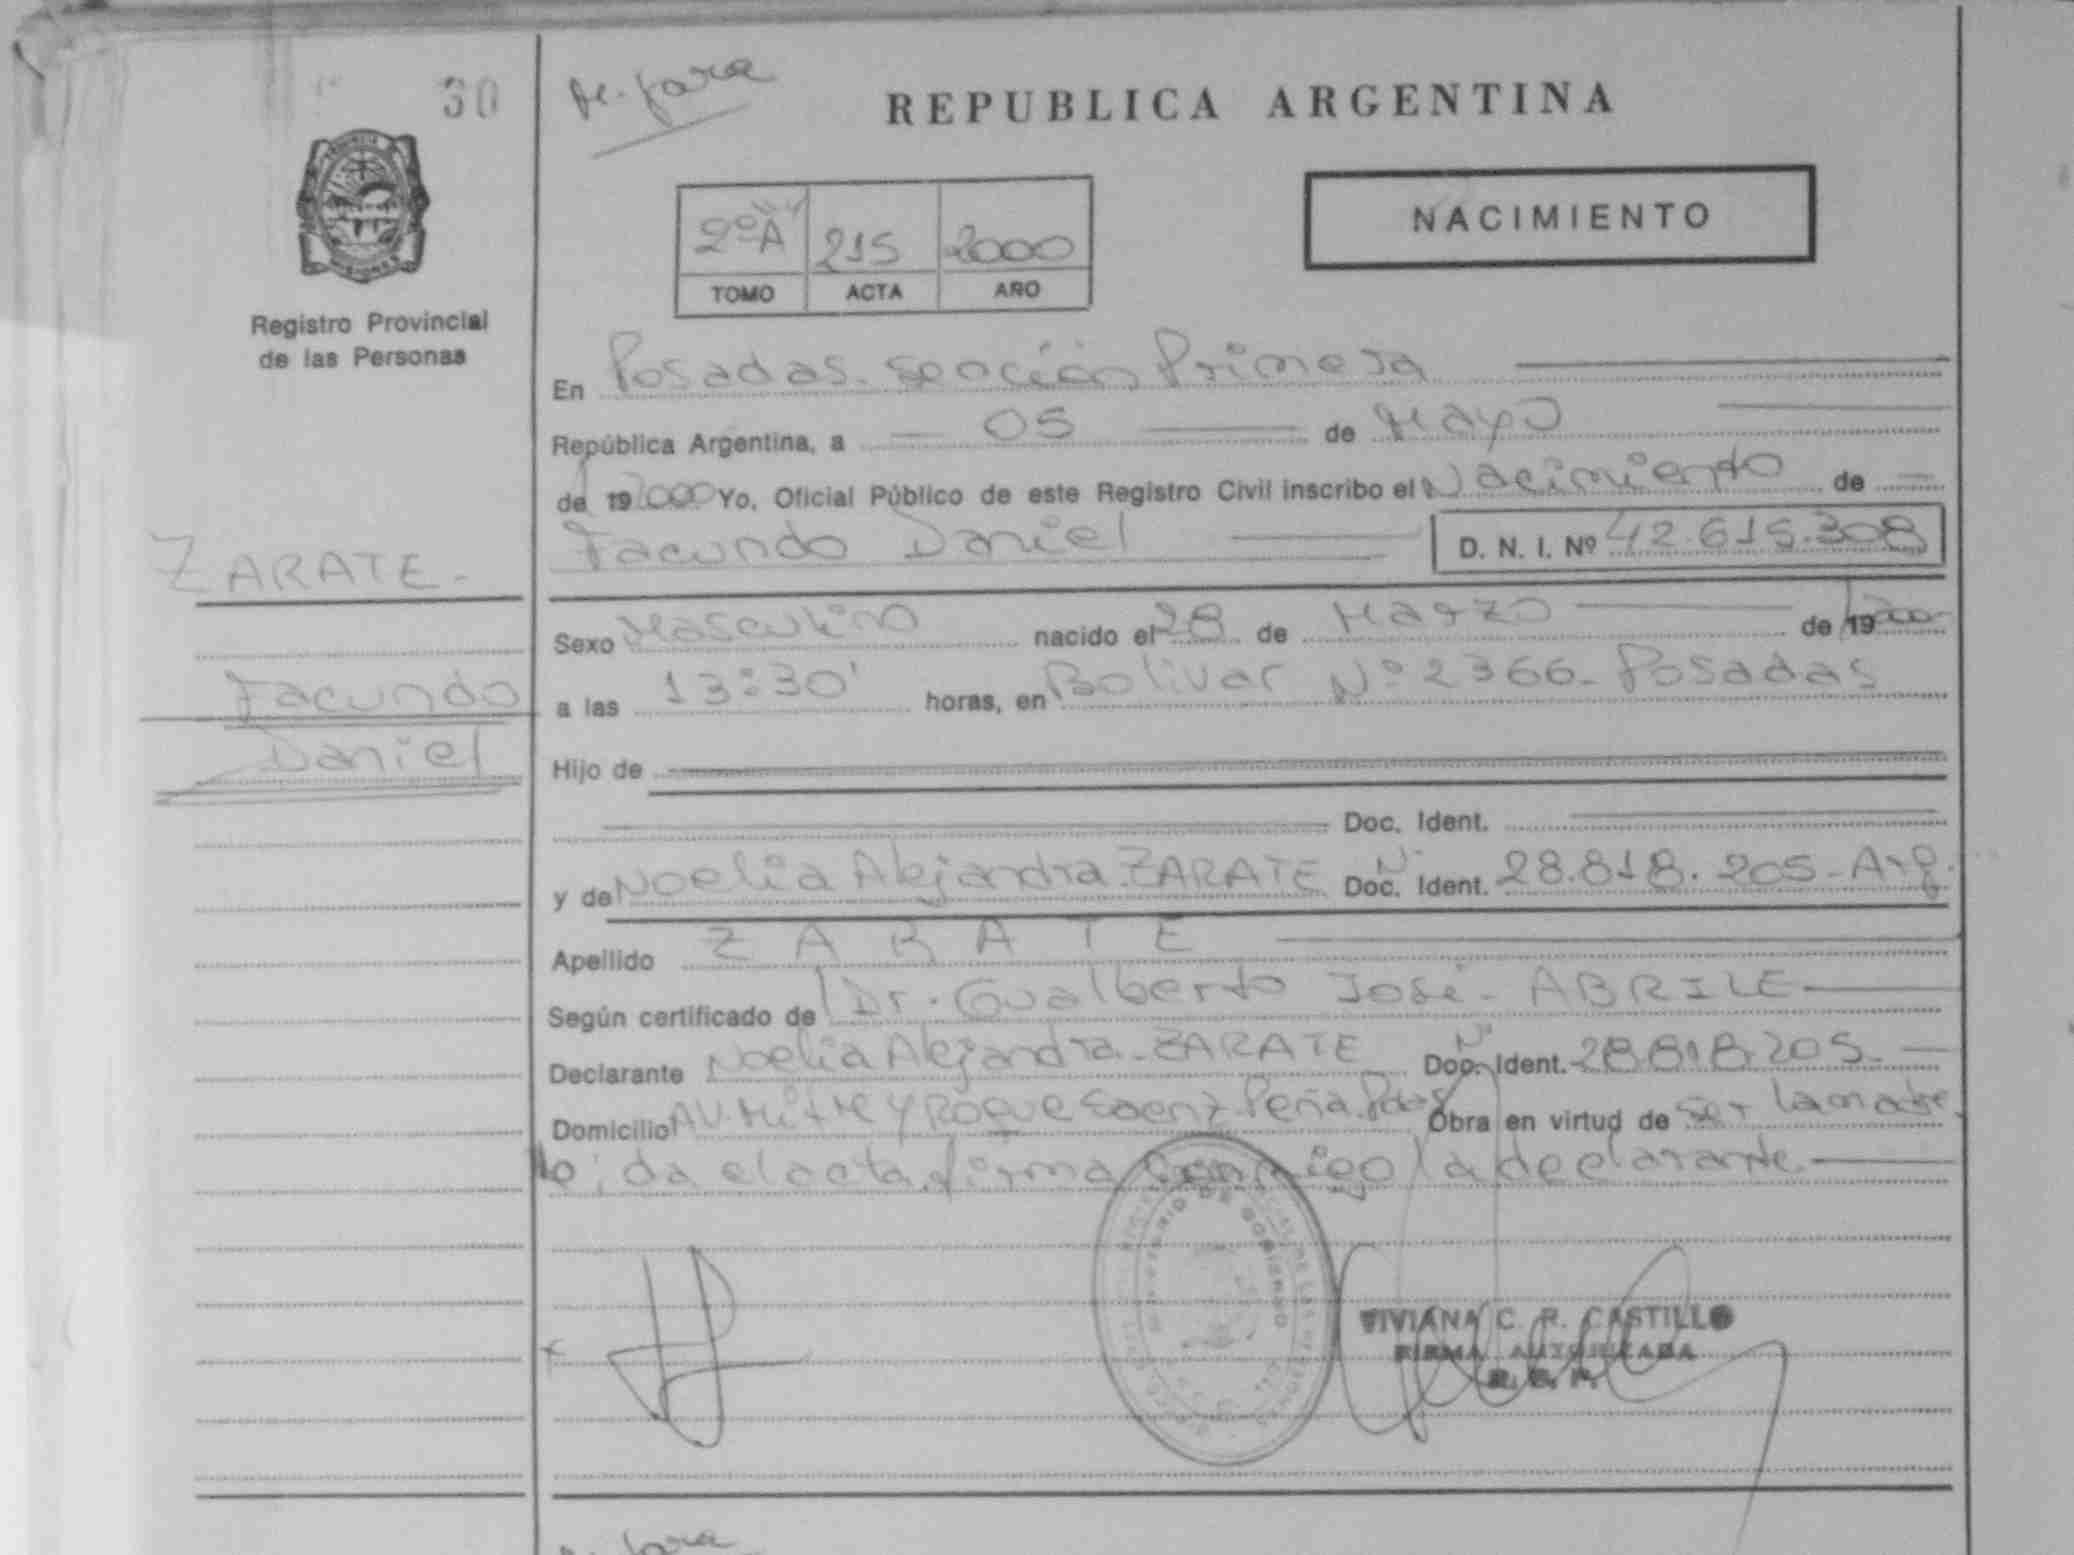 30
REPUBLICA ARGENTINA
NACIMIENTO
2º A 215 2000
TOMO ACTA AÑO
Registro Provincial
de las Personas
MISIONES
En Posadas. sección Primera
República Argentina, a 05 de Mayo
de 19 2000 Yo, Oficial Público de este Registro Civil inscribo el Nacimiento de
Facundo Daniel D. N. I. Nº 42.615.308
ZARATE.
Facundo
Daniel
Sexo Masculino nacido el 28 de Marzo de 19
a las 13:30' horas, en Bolivar Nº 2366. Posadas
Hijo de
Doc. Ident.
y de Noelia Alejandra. ZARATE Doc. Nº Ident. 28.818.205 - Arg.
Apellido ZARATE
Según certificado de Dr. Gualberto José. ABRILE
Declarante Noelia Alejandra. ZARATE Doc. Nº Ident. 28.818.205.
Domicilio AV. Mitre y Roque Saenz Peña. Pdas Obra en virtud de ser la madre.
leida el acta, firma conmigo la declarante.
MINISTERIO DE GOBIERNO
VIVIANA C. R. CASTILLO
FIRMA AUTORIZADA